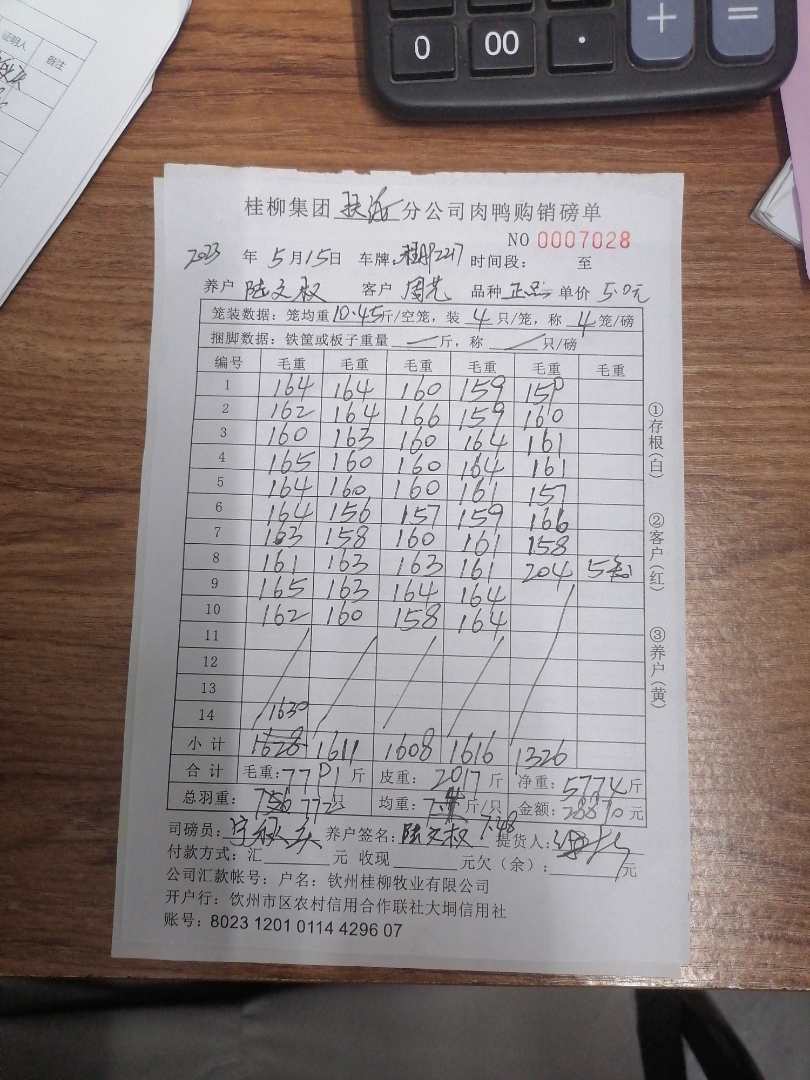 证明人
备注
0 00 ·
+ =
桂柳集团 分公司肉鸭购销磅单
NO 0007028
2023 年 5月15日 车牌: 时间段: 至
养户 陆文权 客户 周芫 品种 正品 单价 5.0元
笼装数据:笼均重10.45斤/空笼,装 4 只/笼,称 4 笼/磅
捆脚数据:铁筐或板子重量 — 斤,称 只/磅
编号 毛重 毛重 毛重 毛重 毛重 毛重
1 164 164 160 159
2 162 164 166 159 160
3 160 163 160 164 161
4 165 160 160 164 161
5 164 160 160 161 157
6 164 156 157 159 166
7 163 158 160 161 158
8 161 163 163 161 204 5
9 165 163 164 164
10 162 160 158 164
11
12
13
14 1630
小计 1628 1611 1608 1616 1326
合计 毛重:7791斤 皮重:2017斤 净重:5774斤
总羽重: 772只 均重: 斤/只 金额:28870元
7.48
司磅员: 养户签名:陆文权 提货人:
付款方式:汇 元 收现 元欠(余): 元
公司汇款帐号:户名:钦州桂柳牧业有限公司
开户行:钦州市区农村信用合作联社大垌信用社
账号:8023 1201 0114 4296 07
①存根(白) ②客户(红) ③养户(黄)